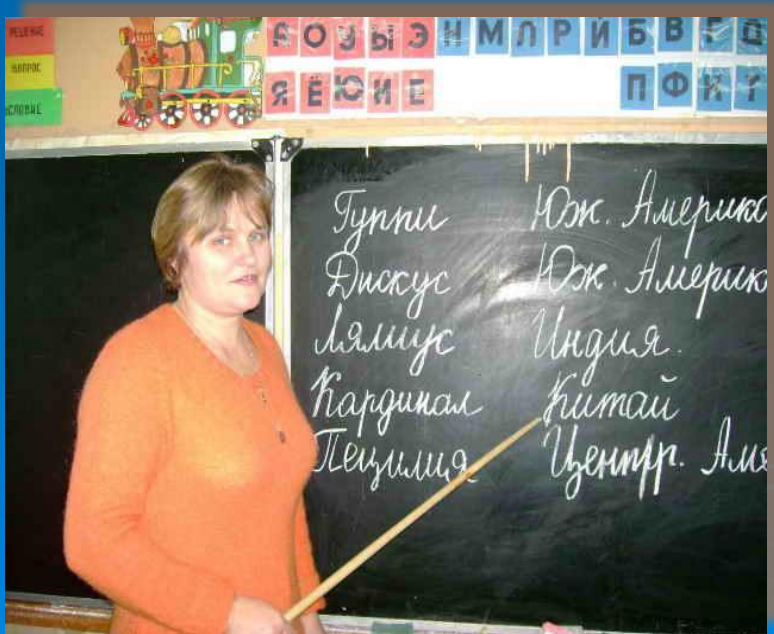 РЕШЕНИЕ
ВОПРОС
УСЛОВИЕ
А О У Ы Э Н М Л Р Й Б В Г Д
Я Ё Ю И Е П Ф К Т
Гуппи Юж. Америка
Дискус Юж. Америк
Лялиус Индия.
Кардинал Китай
Пецилия Центр. Аме